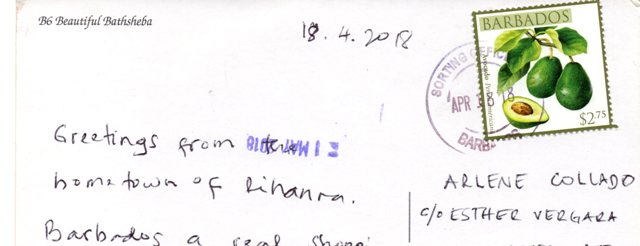 B6 Beautiful Bathsheba
18.4.2018
BARBADOS
Avocado Persea americana
$2.75
SORTING OFFICE
APR 18 18
BARBADOS
Greetings from the
hometown of Rihanna.
Barbados a real
ARLENE COLLADO
c/o ESTHER VERGARA